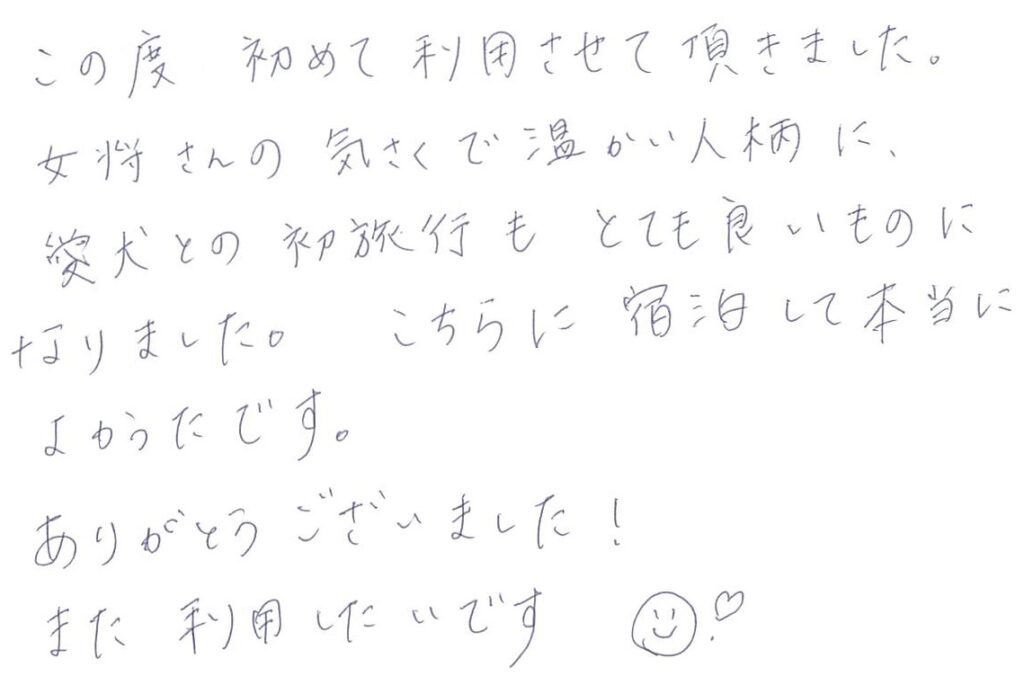 この度 初めて利用させて頂きました。
女将さんの 気さくで温かい人柄に、
愛犬との 初旅行も とても良いものに
なりました。 こちらに 宿泊して本当に
よかったです。
ありがとうございました！
また 利用したいです